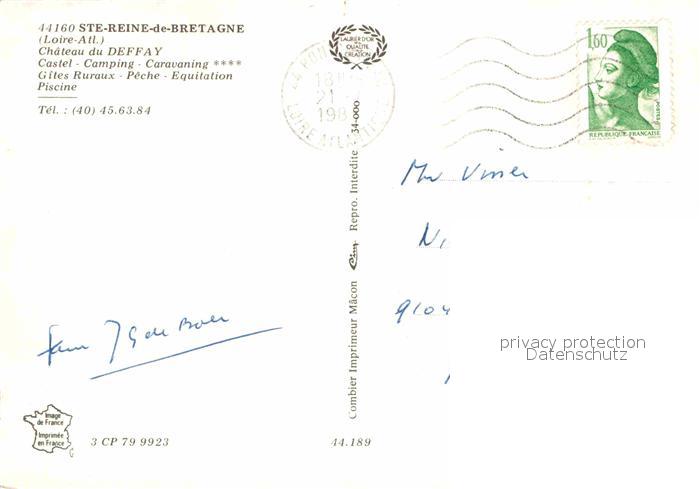 44160 STE-REINE-de-BRETAGNE
(Loire-Atl.)
Château du DEFFAY
Castel - Camping - Caravaning ****
Gîtes Ruraux - Pêche - Equitation
Piscine
Tél. : (40) 45.63.84
LAURIER D'OR
DE LA
QUALITE
CREATION
44 PON
18H
21
198
LOIRE ATLANTIQUE
1,60
POSTES
REPUBLIQUE FRANÇAISE
Combier Imprimeur Mâcon Cim Repro. Interdite 34-000
Visser
9104
privacy protection
Datenschutz
Fam de Boer
Image
de France
Imprimée
en France
3 CP 79 9923
44.189